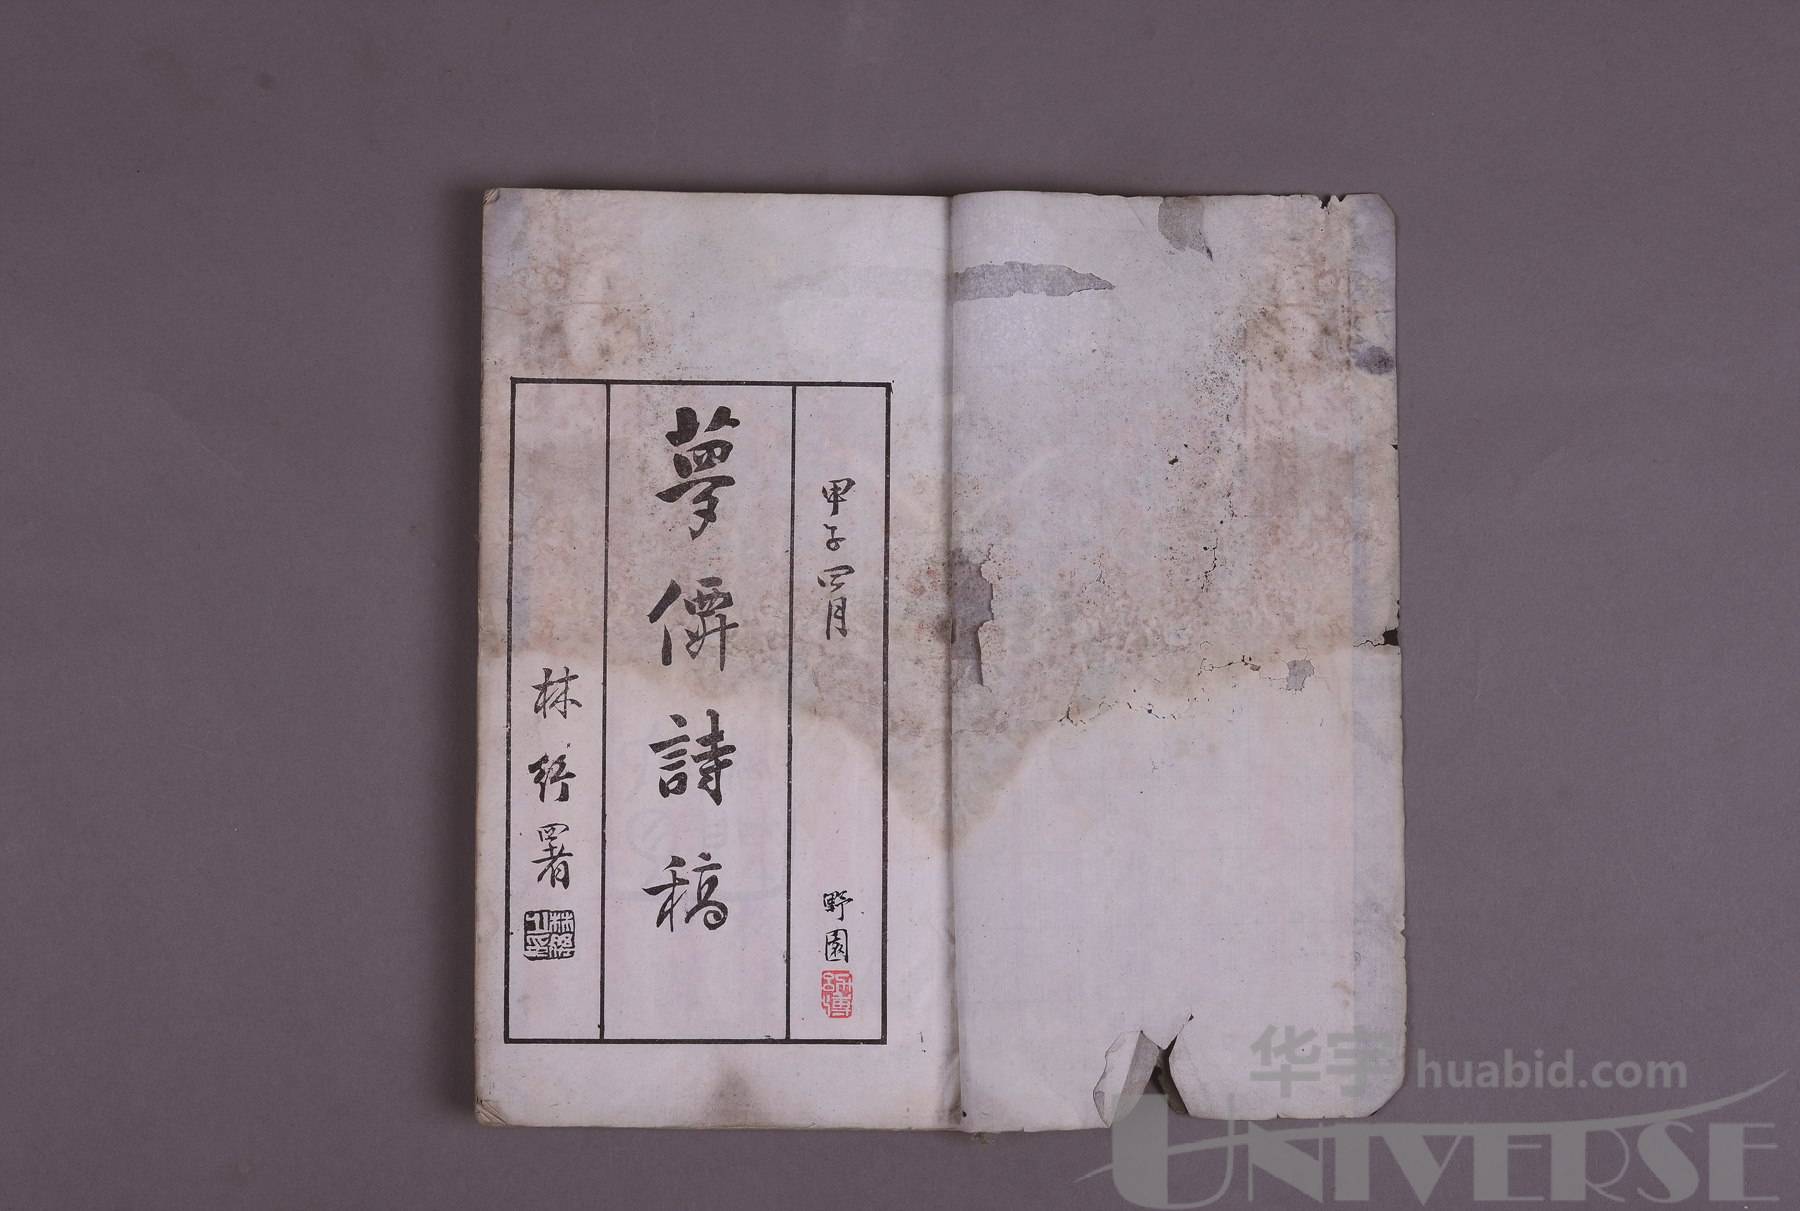 甲子四月
野園
夢僊詩稿
林紓署
华宇 huabid.com
UNIVERSE